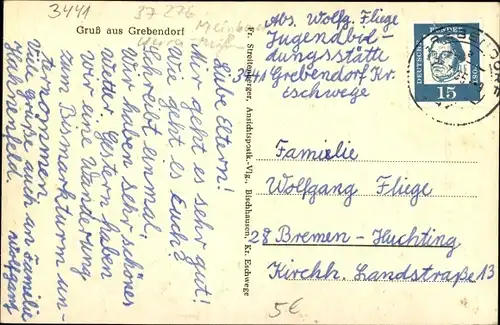 3441
37 276
Gruß aus Grebendorf
Liebe Eltern!
Mir geht es sehr gut!
Wie geht es Euch?
Schreibt einmal.
Wir haben sehr schönes
Wetter. Gestern haben
wir eine Wanderung
zum Bismarkturm un-
ternommen
Viele grüße auch an Familie
Wolfgang
Fr. Streitenberger, Ansichtspostk.-Vlg., Bischhausen, Kr. Eschwege
Abs. Wolfg. Fliege
Jugendbil-
dungsstätte
3441 Grebendorf Kr.
Eschwege
DEUTSCHE
BUNDESPOST
15
Familie
Wolfgang Fliege
28 Bremen-Huchting
Kirchh. Landstraße 13
5€